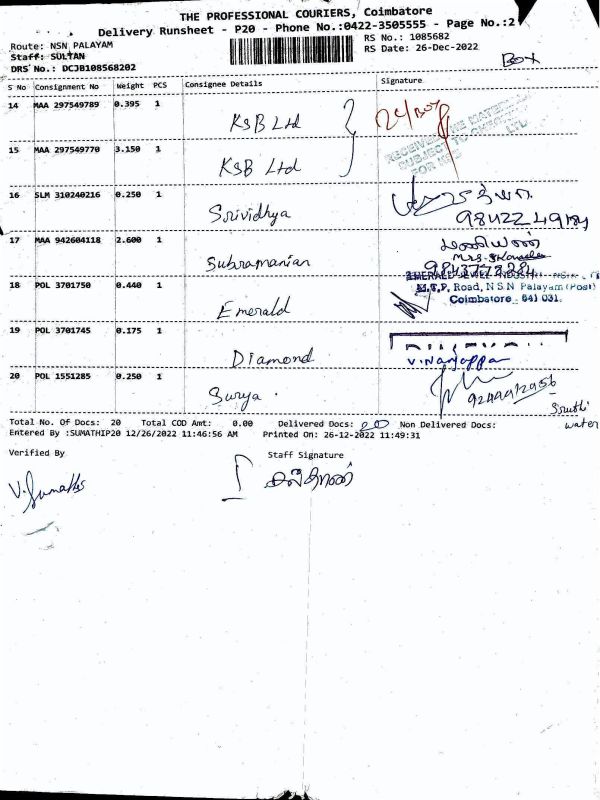 THE PROFESSIONAL COURIERS, Coimbatore
Delivery Runsheet - P20 - Phone No.:0422-3505555 - Page No.:2
Route: NSN PALAYAM RS No.: 1085682
Staff: SULTAN RS Date: 26-Dec-2022
DRS No.: DCJB108568202 Box
S No Consignment No Weight PCS Consignee Details Signature
14 MAA 297549789 0.395 1 KSB Ltd
15 MAA 297549770 3.150 1 KSB Ltd
16 SLM 310240216 0.250 1 Srividhya
17 MAA 942604118 2.600 1 Subramanian
18 POL 3701750 0.440 1 Emerald
M.T.P. Road, N S N Palayam (Post)
Coimbatore - 641 031.
19 POL 3701745 0.175 1 Diamond V.Nanjappa
20 POL 1551285 0.250 1 Surya
Total No. Of Docs: 20 Total COD Amt: 0.00 Delivered Docs: 20 Non Delivered Docs: water
Entered By :SUMATHIP20 12/26/2022 11:46:56 AM Printed On: 26-12-2022 11:49:31
Verified By Staff Signature
V.Sumathi